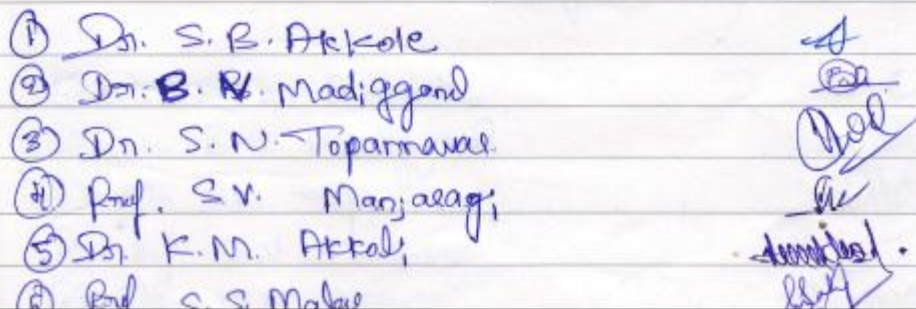 ① Dr. S. B. Akkole
② Dr. B. R. Madiggond
③ Dr. S. N. Toparmaval
④ Prof. S. V. Manjaragi
⑤ Dr. K. M. Akkoli
⑥ Prof S. S. Malaje